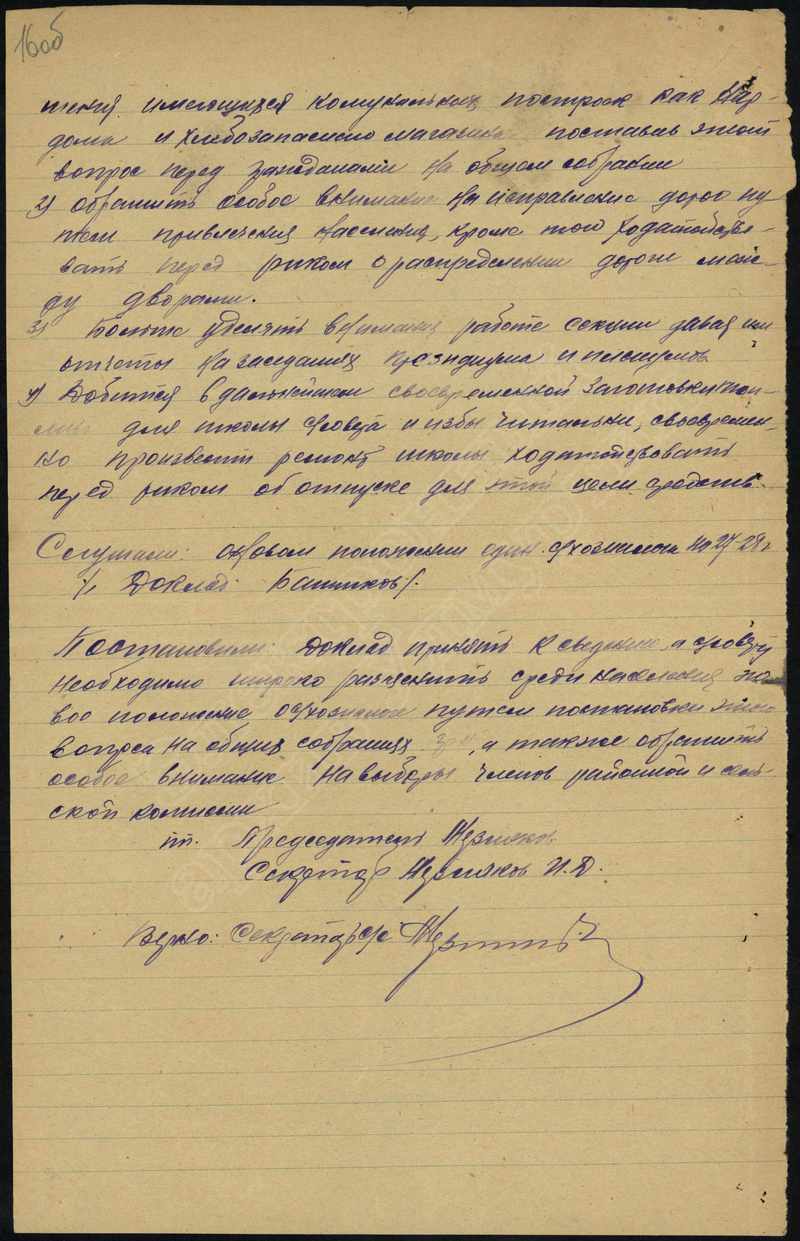 16об
тения имеющихся комунальных построек как Нар-
дома и хлебозапасного магазина поставив этот
вопрос перед гражданами на общем собрании
2) обратить особое внимание на исправление дорог пу
тем привлечения населения, кроме того ходатайство-
вать перед риком о распределении дороги меж-
ду дворами.
3) Больше уделять внимания работе секции давая им
отчеты на заседаниях президиума и пленумов
4) Добится в дальнейшем своевременной заготовки топ-
лива для школы с/совета и избы читальни, своевремен-
но произвести ремонт школы ходатайствовать
перед риком об отпуске для этой цели средств.
Слушали: о новом положении един. с/хозналога на 27-28 г
/. Доклад: Башиков /.
Постановили: Доклад принять к сведению, а с/совету
необходимо широко разъяснить среди населения но
вое положение о с/хозналоге путем постановки этого
вопроса на общих собраниях гр-н, а также обратить
особое внимание на выборы членов районной и сель-
ской комиссии
пп. Председатель
Секретарь И.Д.
Верно: Секретарь с/с